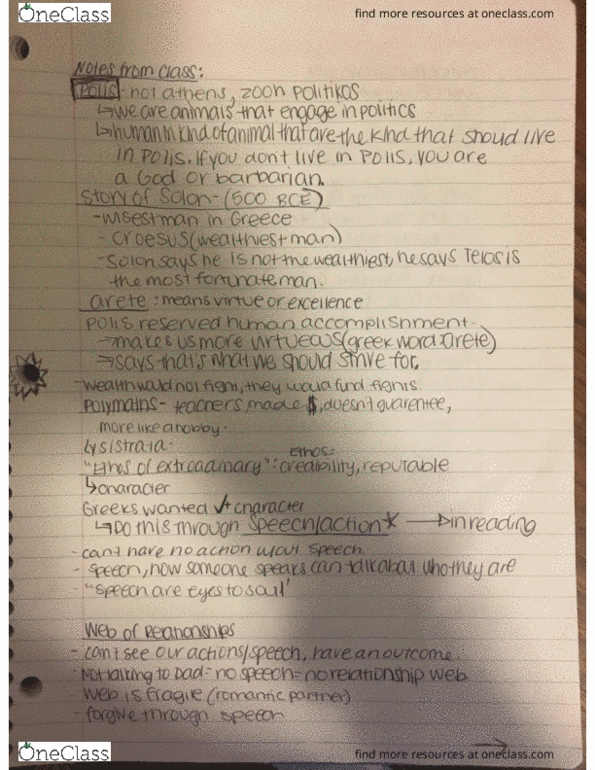 OneClass
find more resources at oneclass.com
Notes from class:
Polis - not athens, zoon politikos
↳ we are animals that engage in politics
↳ human in kind of animal that are the kind that should live
in polis. If you don't live in polis, you are
a God or barbarian.
Story of Solon - (500 BCE)
- wisest man in Greece
- Croesus (wealthiest man)
- Solon says he is not the wealthiest, he says Telos is
the most fortunate man.
arete : means virtue or excellence
polis reserved human accomplishment.
→ makes us more virtueous (greek word: arete)
→ says that's what we should strive for.
- wealth would not fight, they would find fights.
Polymaths - teachers, made $, doesn't guarentee,
more like a hobby.
Lysistrata -
Ethos:
"Ethos of extroadinary": credibility, reputable
↳ character
Greeks wanted character
↳ Do this through speech/action * → in reading
- can't have no action w/out speech.
- speech, how someone speaks can talk about who they are
- "speech are eyes to soul"
Web of Relationships
- can't see our actions/speech, have an outcome.
- Not talking to Dad = no speech = no relationship web
- web is fragile (romantic partner)
- forgive through speech
OneClass
find more resources at oneclass.com